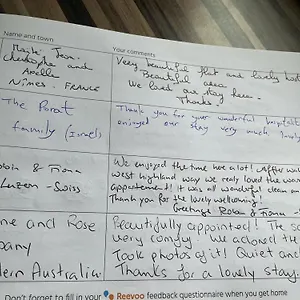 Name and town
Your comments
Marie Jean
Christophe and
Axelle
Nîmes. FRANCE
Very beautiful flat and lovely hos
Beautiful area
We loved our stay here.
Thanks
The Porat
family (Israel)
Thank you for your wonderful hospital
enjoyed our stay very much,
Robin & Fiona
Luzern - Swiss
We enjoyed the time here a lot! After wal
west highland way we realy loved the wo
appartement! It was all wonderful clean an
Thank you for the lovely wellcoming!
Greetings Robin & Fiona
ne and Rose
pany
ern Australia.
Beautifully appointed! The so
very comfy. We adored the
Took photos of it! Quiet and
Thanks for a lovely stay.
Don't forget to fill in your Reevoo feedback questionnaire when you get home